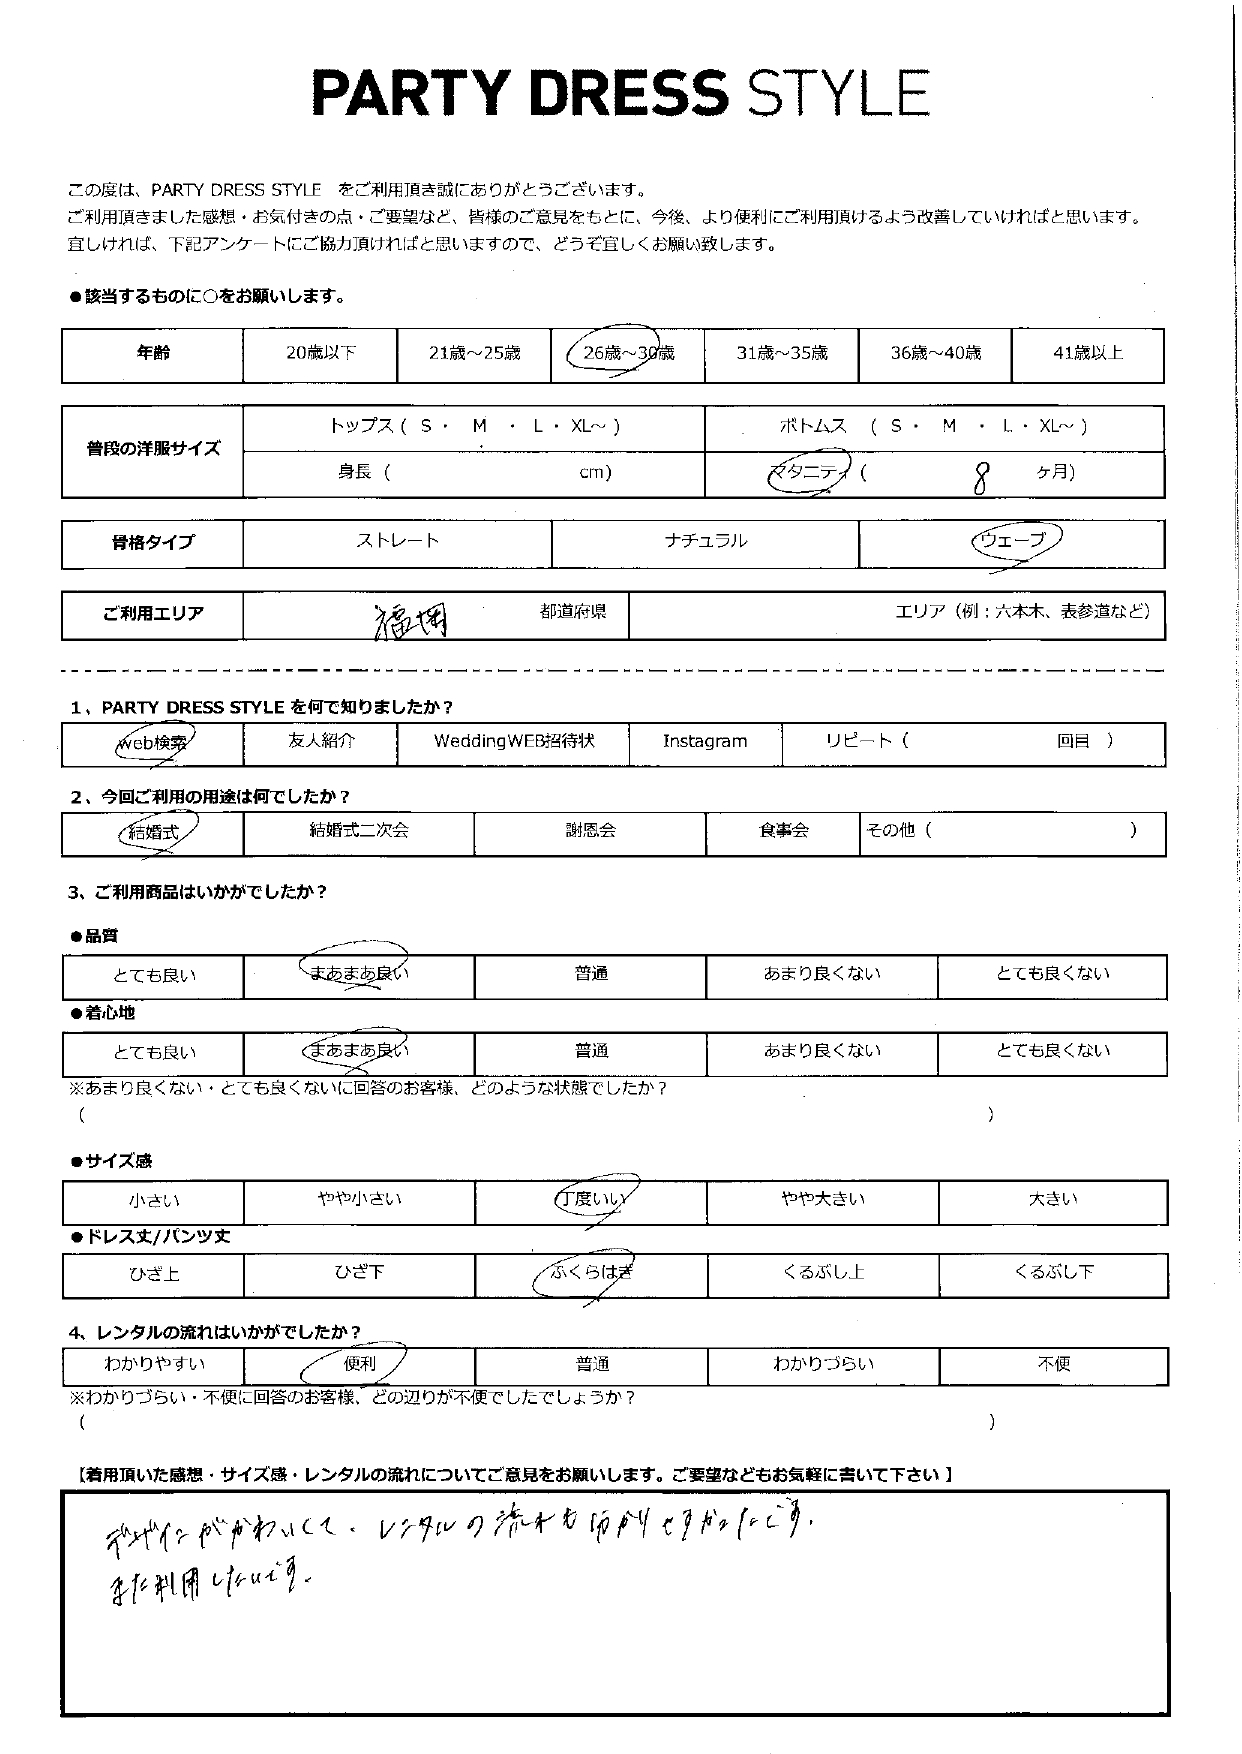 PARTY DRESS STYLE
この度は、PARTY DRESS STYLE をご利用頂き誠にありがとうございます。
ご利用頂きました感想・お気付きの点・ご要望など、皆様のご意見をもとに、今後、より便利にご利用頂けるよう改善していければと思います。
宜しければ、下記アンケートにご協力頂ければと思いますので、どうぞ宜しくお願い致します。
●該当するものに○をお願いします。
年齢 20歳以下 21歳～25歳 26歳～30歳 31歳～35歳 36歳～40歳 41歳以上
普段の洋服サイズ トップス ( S ・ M ・ L ・ XL～ ) ボトムス ( S ・ M ・ L ・ XL～ )
身長 ( cm) マタニティ ( 8 ヶ月)
骨格タイプ ストレート ナチュラル ウェーブ
ご利用エリア 福岡 都道府県 エリア（例：六本木、表参道など）
1、PARTY DRESS STYLE を何で知りましたか？
web検索 友人紹介 WeddingWEB招待状 Instagram リピート ( 回目 )
2、今回ご利用の用途は何でしたか？
結婚式 結婚式二次会 謝恩会 食事会 その他 ( )
3、ご利用商品はいかがでしたか？
●品質
とても良い まあまあ良い 普通 あまり良くない とても良くない
●着心地
とても良い まあまあ良い 普通 あまり良くない とても良くない
※あまり良くない・とても良くないに回答のお客様、どのような状態でしたか？
( )
●サイズ感
小さい やや小さい 丁度いい やや大きい 大きい
●ドレス丈/パンツ丈
ひざ上 ひざ下 ふくらはぎ くるぶし上 くるぶし下
4、レンタルの流れはいかがでしたか？
わかりやすい 便利 普通 わかりづらい 不便
※わかりづらい・不便に回答のお客様、どの辺りが不便でしたでしょうか？
( )
【着用頂いた感想・サイズ感・レンタルの流れについてご意見をお願いします。ご要望などもお気軽に書いて下さい】
デザインがかわいくて、レンタルの流れも分かりやすかったです。
また利用したいです。